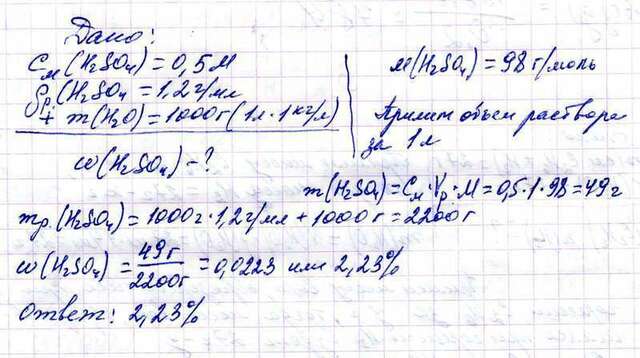 Дано:
См(H2SO4) = 0,5 М
ρр.(H2SO4) = 1,2 г/мл
+ m(H2O) = 1000 г (1л · 1 кг/л)
ω(H2SO4) - ?
M(H2SO4) = 98 г/моль
Примем объем раствора
за 1 л
m(H2SO4) = См · Vр · M = 0,5 · 1 · 98 = 49 г
mр.(H2SO4) = 1000 г · 1,2 г/мл + 1000 г = 2200 г
ω(H2SO4) = 49 г / 2200 г = 0,0223 или 2,23%
Ответ: 2,23%